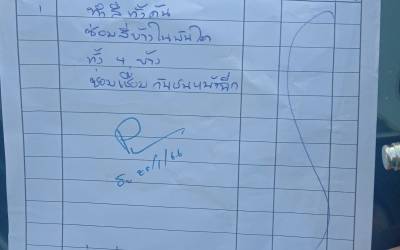 1 ทำสีทั้งคัน
ซ่อมสีข้างในบันได
ทั้ง 4 ข้าง
ซ่อมเชื่อม กันชนหน้า
25/1/66